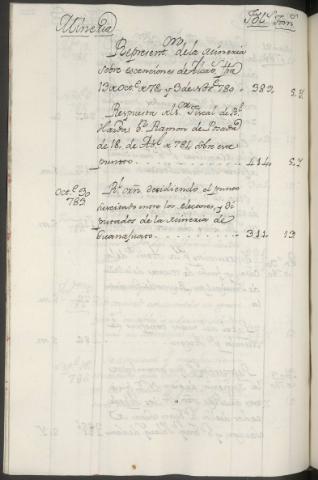 Mineria Fol.s Tom.s
Represent.on de la Mineria
sobre esenciones de Alcav.s fha
13 de Oct.e de 78 y 3 de 780 - 382 5.7
Respuesta del S.or Fiscal de R.l
Haz.da D.n Ramon de Posada
de 18. de de 784 sobre este
punto - 414 5.7
Oct.e 30 R.l orn decidiendo el punto
783
suscitado entre los electores, y Di
putados de la Mineria de
Guanajuato - 311 13